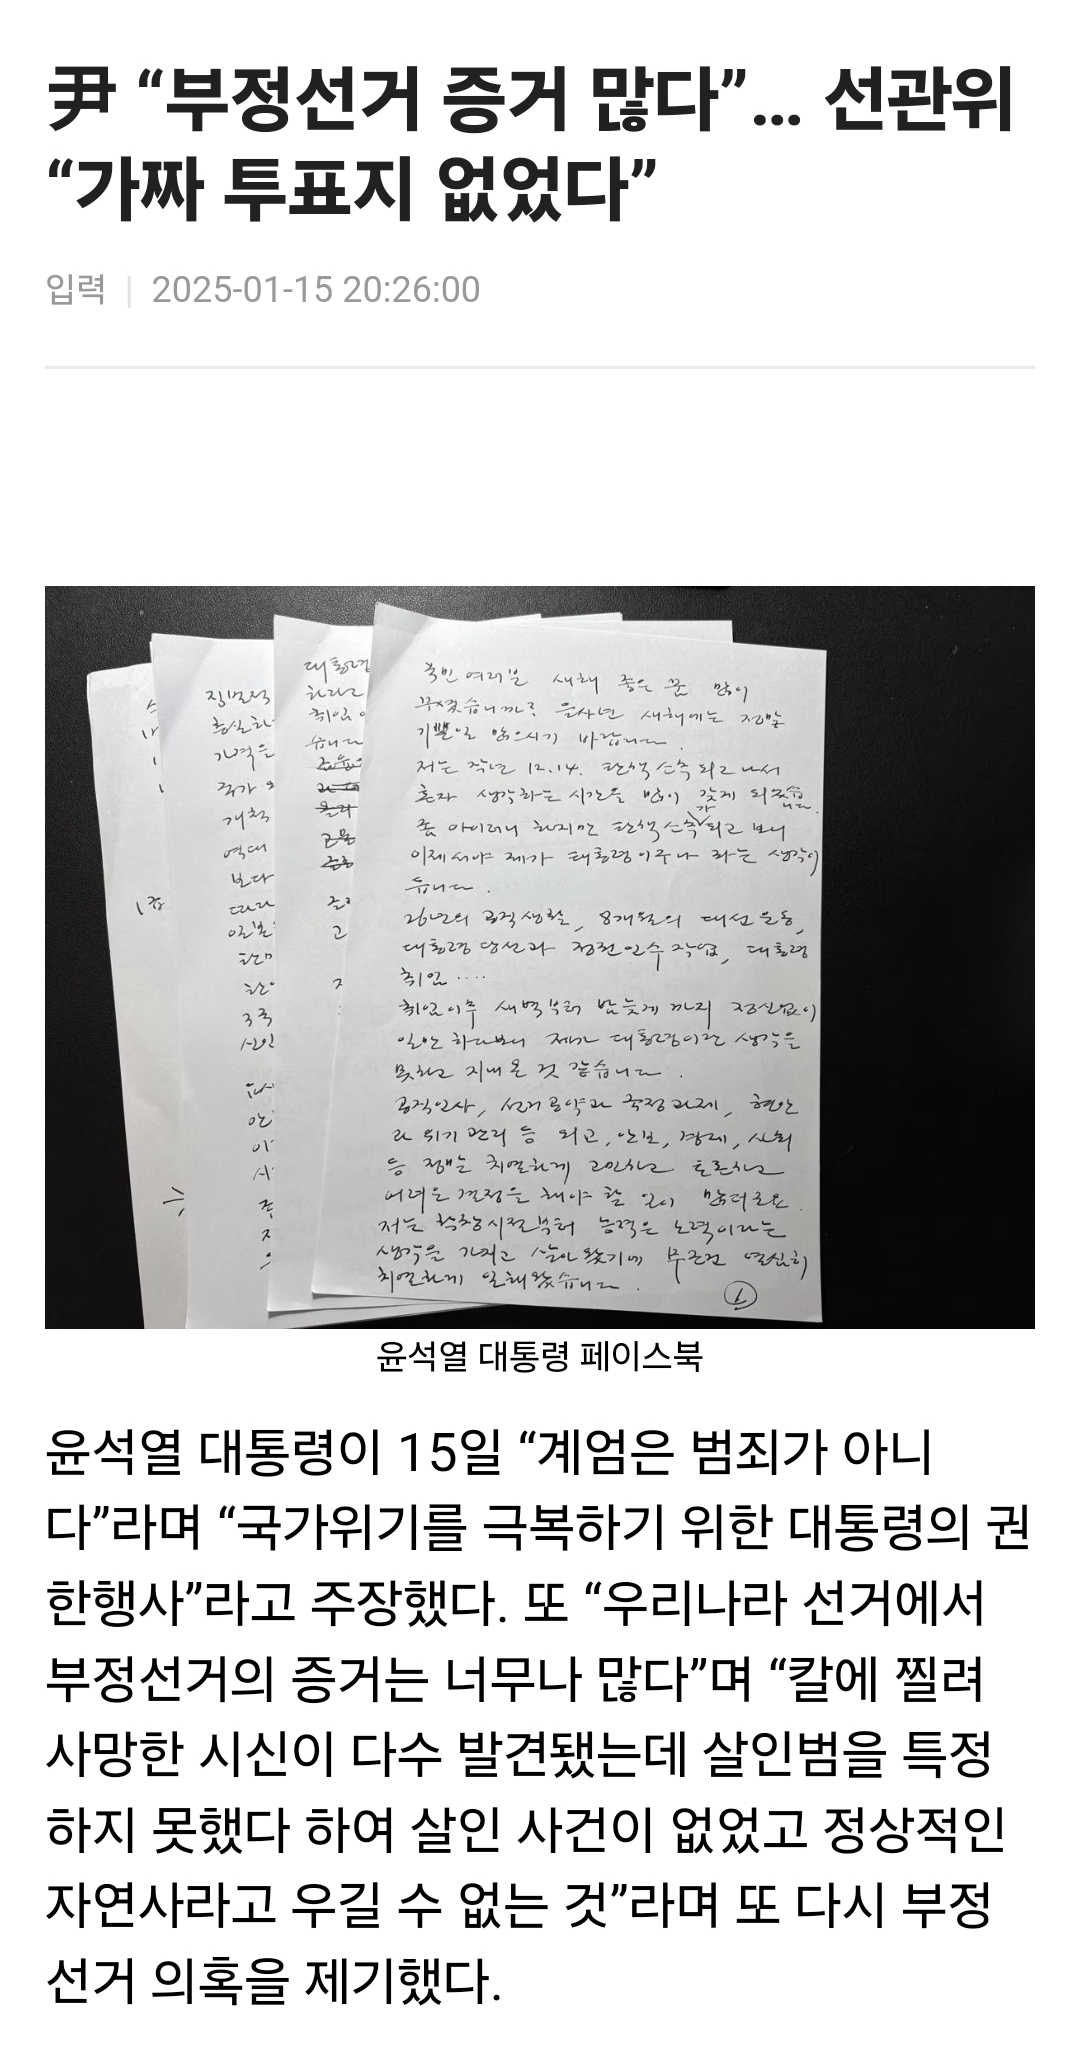 尹 “부정선거 증거 많다”… 선관위
“가짜 투표지 없었다”
입력 | 2025-01-15 20:26:00
국민 여러분 새해 좋은 꿈 많이
꾸셨습니까? 을사년 새해에는 정말
기쁜일 많으시기 바랍니다.
저는 작년 12.14. 탄핵 소추 되고 나서
혼자 생각하는 시간을 많이 갖게 되었습니다.
좀 아이러니 하지만 탄핵소추가 되고 보니
이제서야 제가 대통령이구나 라는 생각이
듭니다.
26년의 공직생활, 8개월의 대선 운동,
대통령 당선과 정권 인수 작업, 대통령
취임....
취임이후 새벽부터 밤늦게 까지 정신없이
일만 하다보니 제가 대통령이란 생각을
못하고 지내온 것 같습니다.
공직인사, 선거공약과 국정과제, 현안
과 위기 관리 등 외교, 안보, 경제, 사회
등 정말 치열하게 고민하고 토론하고
어려운 결정을 해야 할 일이 많더군요.
저는 학창시절부터 능력은 노력이라는
생각을 가지고 살아왔기에 무조건 열심히
치열하게 일해왔습니다.
1
대통령
하라고
취임
습니다
고
직접적
충실하
가격을
국가
개척
역대
보다
따라
일본
한미
3국
윤석열 대통령 페이스북
윤석열 대통령이 15일 “계엄은 범죄가 아니
다”라며 “국가위기를 극복하기 위한 대통령의 권
한행사”라고 주장했다. 또 “우리나라 선거에서
부정선거의 증거는 너무나 많다”며 “칼에 찔려
사망한 시신이 다수 발견됐는데 살인범을 특정
하지 못했다 하여 살인 사건이 없었고 정상적인
자연사라고 우길 수 없는 것”라며 또 다시 부정
선거 의혹을 제기했다.